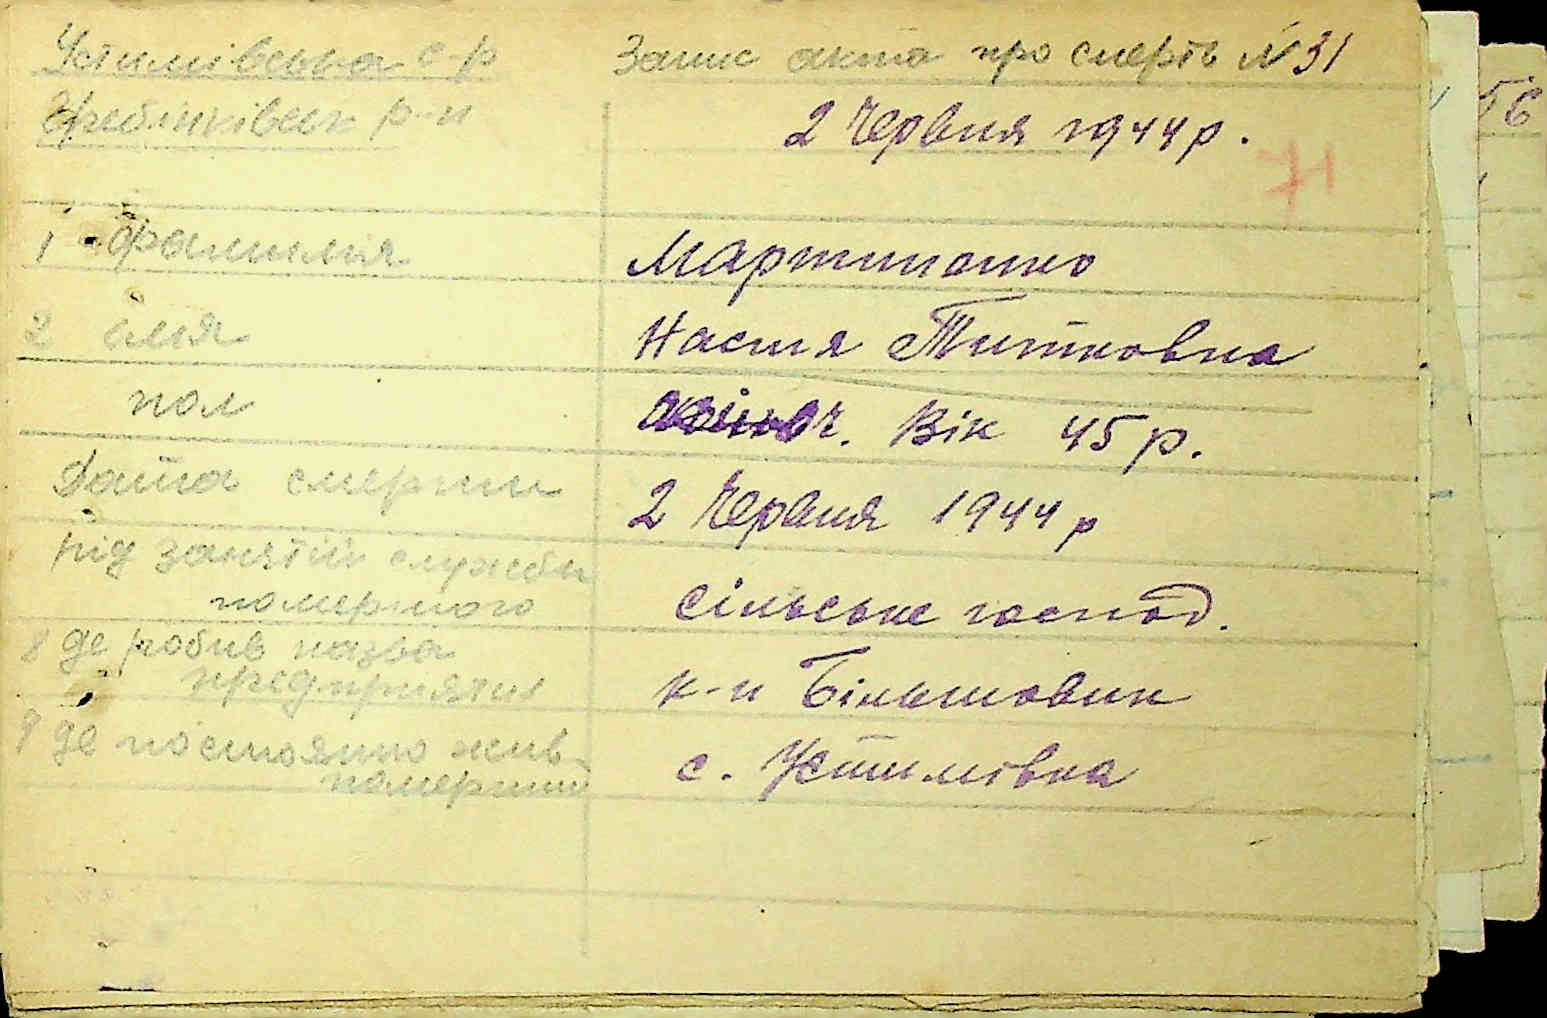 Устимівська с-р Запис акта про смерть № 31
Гребінківськ р-н 2 Червня 1944 р.
1 фамилия Мартиненко
2 имя Настя Титковна
пол ч. Вік 45 р.
Дата смерти 2 Червня 1944 р
рід занятій служби
помершого сільське господ.
8 де робив назва
предприятия к-п Більшовик
9 де постоянно жив
померший с. Устимівка
56